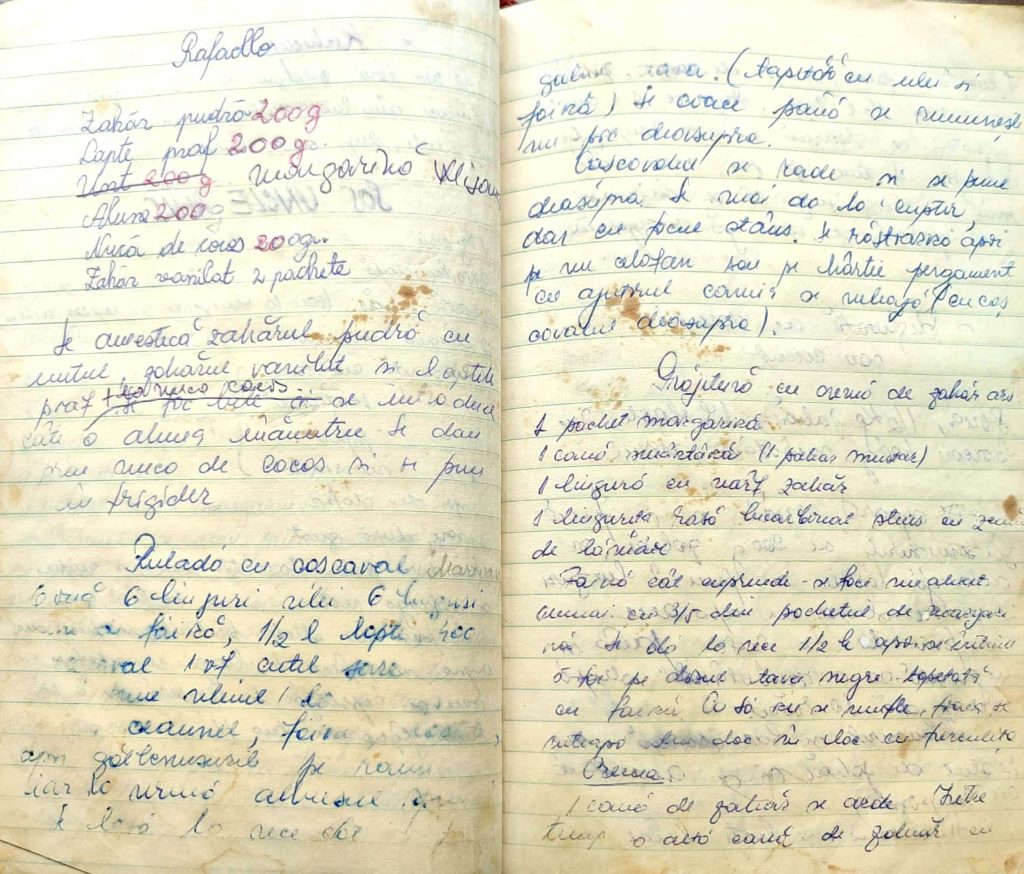 Rafaello
Zahăr pudră 200g
Lapte praf 200g
Unt 200g margarină
Alune 200g
Nucă de cocos 200gr.
Zahăr vanilat 2 pachete
Se amestecă zahărul pudră cu
untul, zahărul vanilat si laptele
praf + nuca cocos...
câte o alună înăuntru Se dau
prin nuca de cocos si se pun
în frigider
Ruladă cu cascaval
6 ouă 6 linguri ulei 6 linguri
de făină, 1/2 l lapte 400
1 vf cutit sare
făina
apoi gălbenusurile pe rând
iar la urmă
la rece
tava. (tapetată cu ulei si
făină) Se coace pană se rumeneste
deasupra.
Cascavalul se rade si se pune
deasupra Se mai dă la cuptor,
dar cu focul stâns. Se răstoarnă apoi
pe un celofan sau pe hârtie pergament
cu ajutorul căruia se rulează (cu cas,
cavalul deasupra).
Prăjitură cu cremă de zahăr ars
1 pachet margarină
1 cană smântână (1 pahar mustar)
1 lingură cu varf zahăr
1 lingurita rasă bicarbonat stins cu zeamă
de lămâie
Făină cât cuprinde - se face un aluat
cu 3/5 din pachetul de margari
nă Se dă la rece 1/2 h apoi se întind
5 foi pe dosul tava negre tapetată
cu făină. Ca să nu se umfle, foaia se
înteapă din loc în loc cu furculita
Crema
1 cană de zahăr se arde Intre
timp o altă cană de zahăr cu